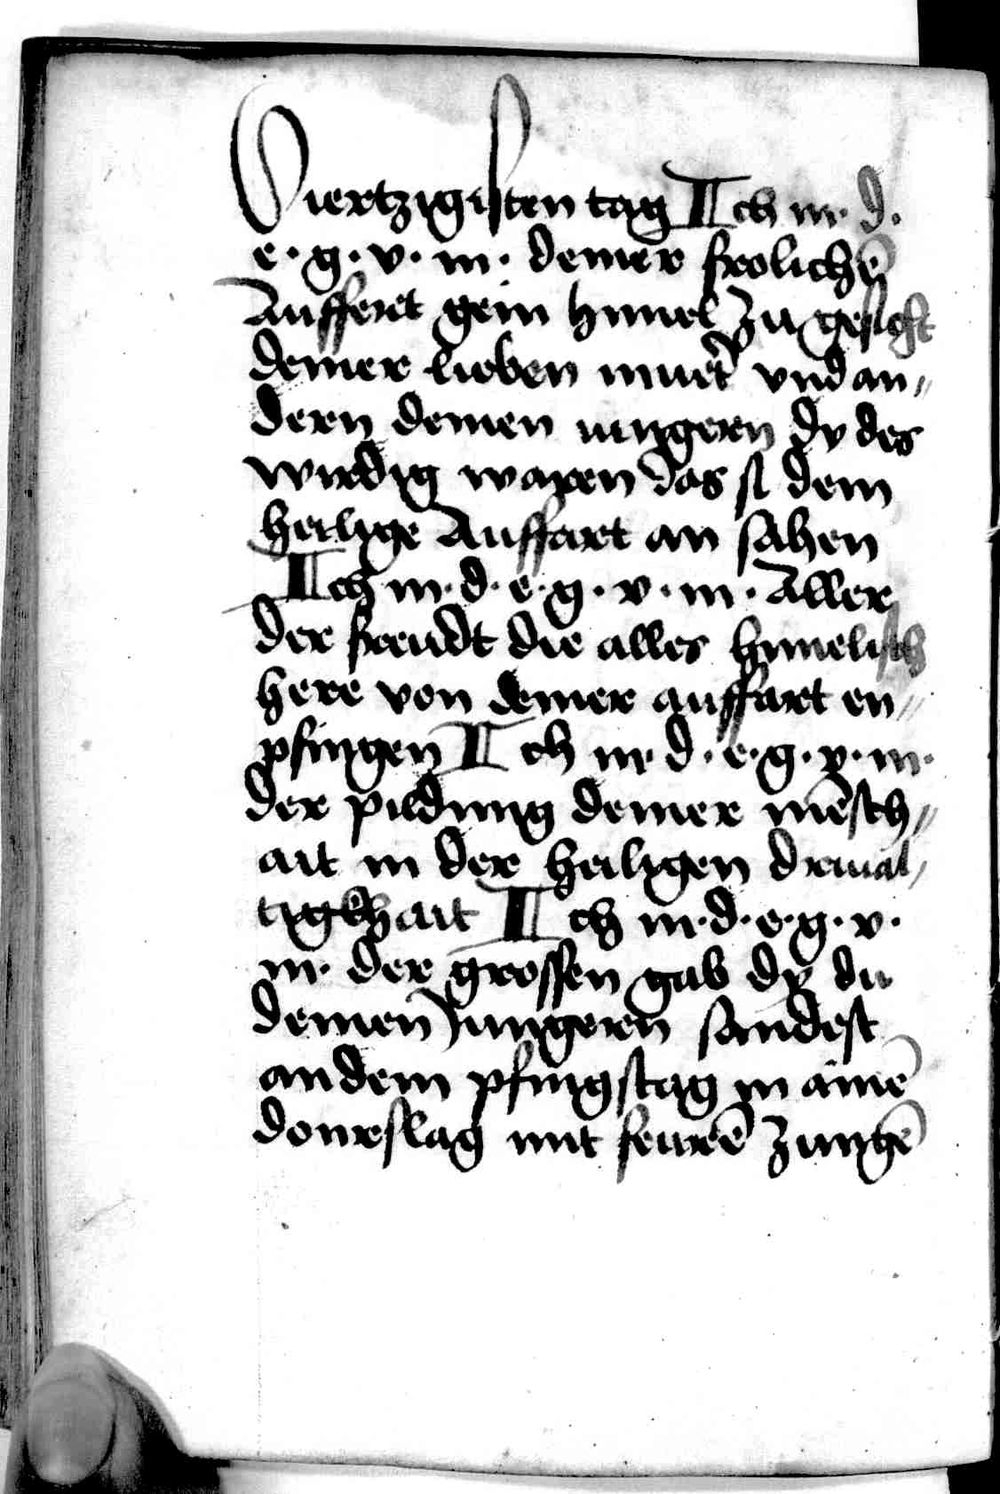 Viertzigisten tag Ich m. d.
e. g. v. m. deiner frolichē
Auffert gein himel zu gesicht
deiner lieben muet̄ vnd an„
dern deinen iungern dy des
wirdig waren das si dein
heilige Auffart an sahen
Ich m. d. e. g. v. m. Aller
der freudt die alles himelisch
here von deiner auffart en„
pfingen Ich m. d. e. g. v. m.
der pildung deiner mēsch„
ait in der heiligen driual„
tigkhait Ich m. d. e. g. v.
m. der grossen gab dy du
deinen Jungern sandest
an dem pfingstag in ainē
donrslag mit feurē zungē